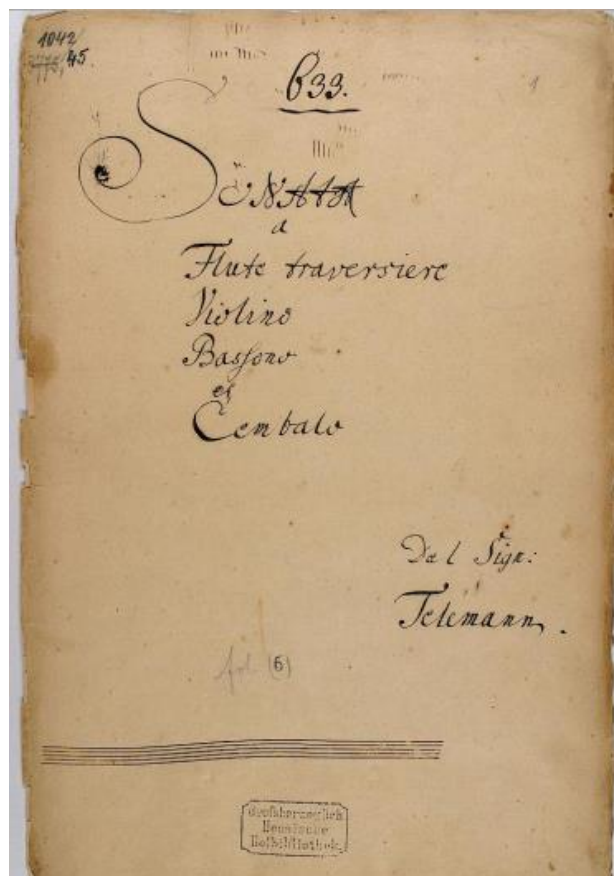 1042
45.
633.
1
SONATA
a
Flute traversiere
Violino
Bassono
et
Cembalo
Dal Sign:
Telemann.
fol (6)
Großherzoglich
Hessische
Hofbibliothek.